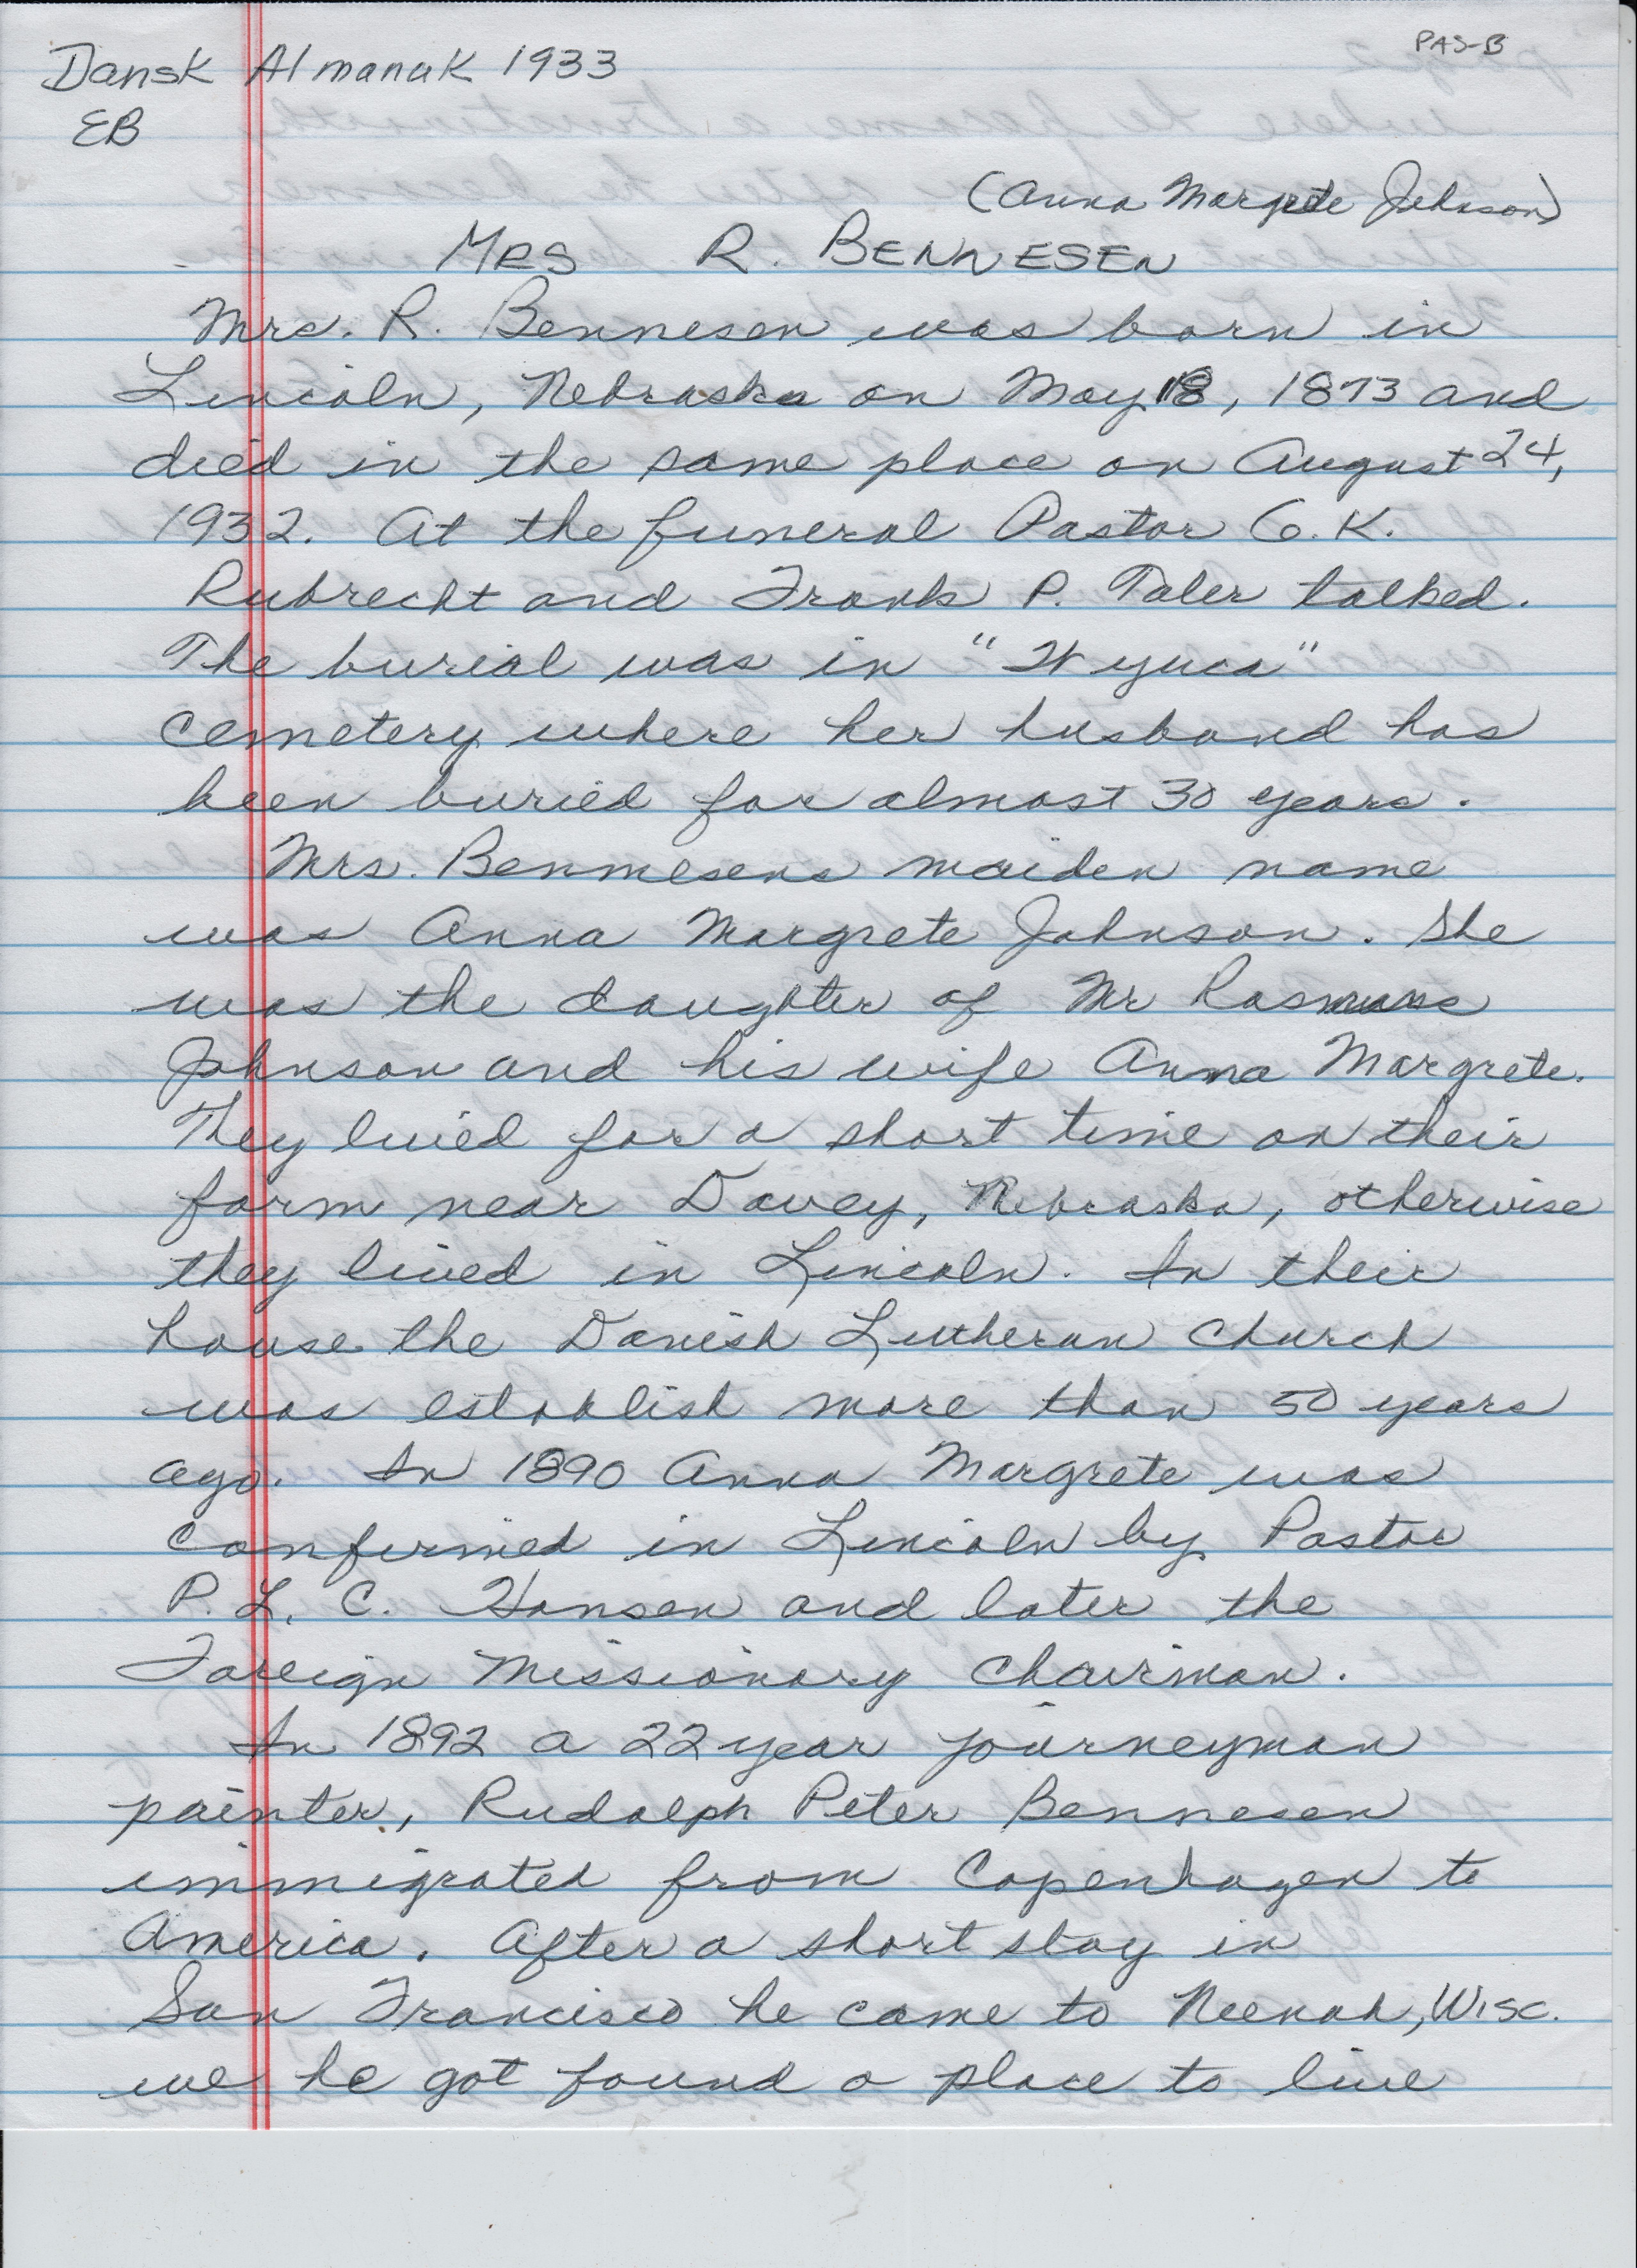 PAS-B
Dansk Almanak 1933
EB
(Anna Margrete Johnson)
MRS R. BENNESEN
Mrs. R. Bennesen was born in
Lincoln, Nebraska on May 18, 1873 and
died in the same place on August 24,
1932. At the funeral Pastor G. K.
Rubrecht and Frank P. Taler talked.
The burial was in "Wyuca"
cemetery where her husband has
been buried for almost 30 years.
Mrs. Bennesens maiden name
was Anna Margrete Johnson. She
was the daughter of Mr Rasmus
Johnson and his wife Anna Margrete.
They lived for a short time on their
farm near Davey, Nebraska, otherwise
they lived in Lincoln. In their
house the Danish Lutheran Church
was establish more than 50 years
ago. In 1890 Anna Margrete was
confirmed in Lincoln by Pastor
P. L. C. Hansen and later the
Foreign Missionary Chairman.
In 1892 a 22 year journeyman
painter, Rudolph Peter Bennesen
immigrated from Copenhagen to
America. After a short stay in
San Francisco he came to Neenah, Wisc.
we he got found a place to live